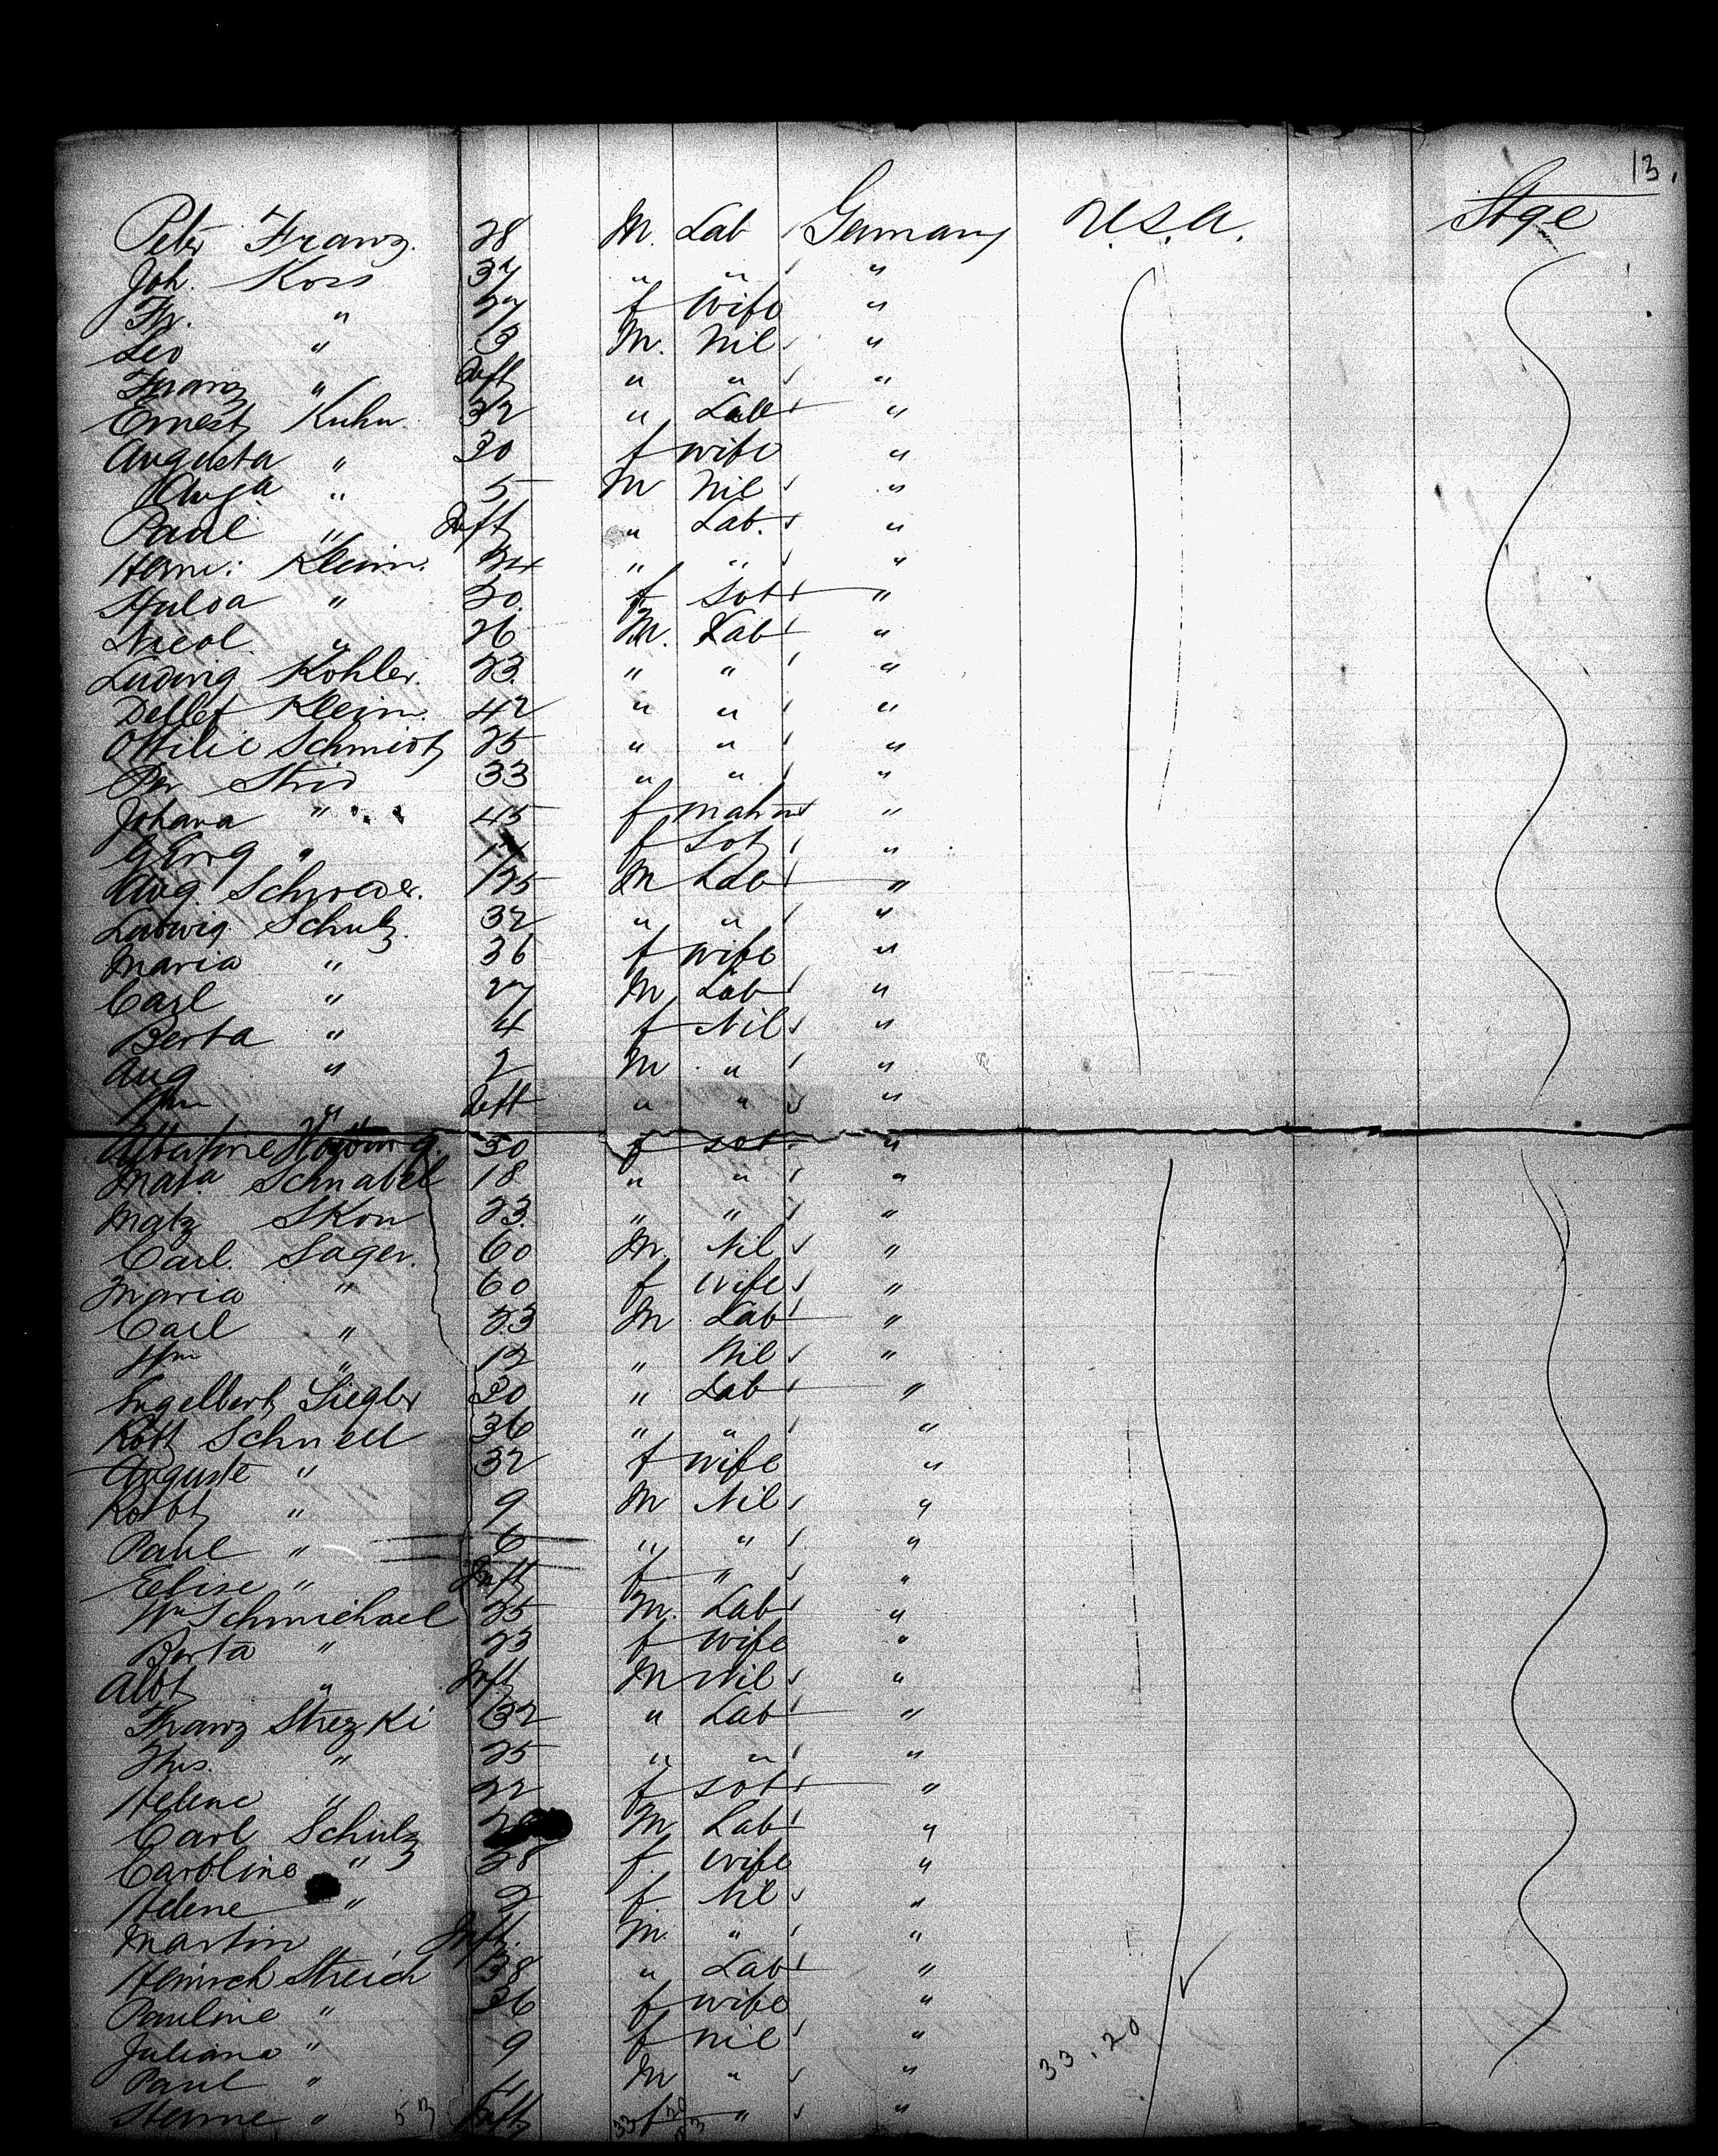 13.
Peter Franz. 28 M. Lab Germany U.S.A. Stge
Joh. Koss 37 " " "
Fr. " 27 f Wife "
Leo " 3 M. Nil "
Franz " Inft " " "
Ernest Kuhn 32 " Lab "
Augusta " 30 f wife "
" 5 M Nil "
Paul " Inft " Lab. "
Herm: Kleim. " " "
Hulda " 20 f Sot "
Nicol. " 26 M. Lab "
Ludwig Kohler. 23 " " "
Detlef Kleim. 42 " " "
Ottilie Schmidt 25 " " "
Per Strid 33 " " "
Johana " 45 f "
" f Sot "
Aug. M Lab "
Ludwig Schulz. 32 " " "
Maria " 36 f wife "
Carl " 27 M Lab "
Berta " 4 f Nil "
Aug " 2 M " "
Hm " Inft " " "
30 f sot "
Mata Schnabel 18 " " "
Matz Skon 23 " " "
Carl. Sager. 60 M. Nil "
Maria " 60 f Wife "
Carl " 23 M Lab "
Hm " 12 " Nil "
Engelbert Siegler 20 " Lab "
Schnell 36 " " "
Auguste " 32 f wife "
" 9 M Nil "
Paul " 6 " " "
Elise " Inft f " "
Wm Schmichael 25 M. Lab "
Berta " 23 f Wife "
Albt " Inft M Nil "
Franz Strezki 32 " Lab "
Ths. " 25 " " "
Helene " 22 f sot "
Carl Schulz M Lab "
Caroline " 28 f. Wife "
Helene " 2 f Nil "
Martin , Inft. M. " "
Heinrch Streich 38 " Lab "
Pauline " 36 f wife "
Juliana " 9 f nil "
Paul " M " " 33.20
" 53 Inft f " "